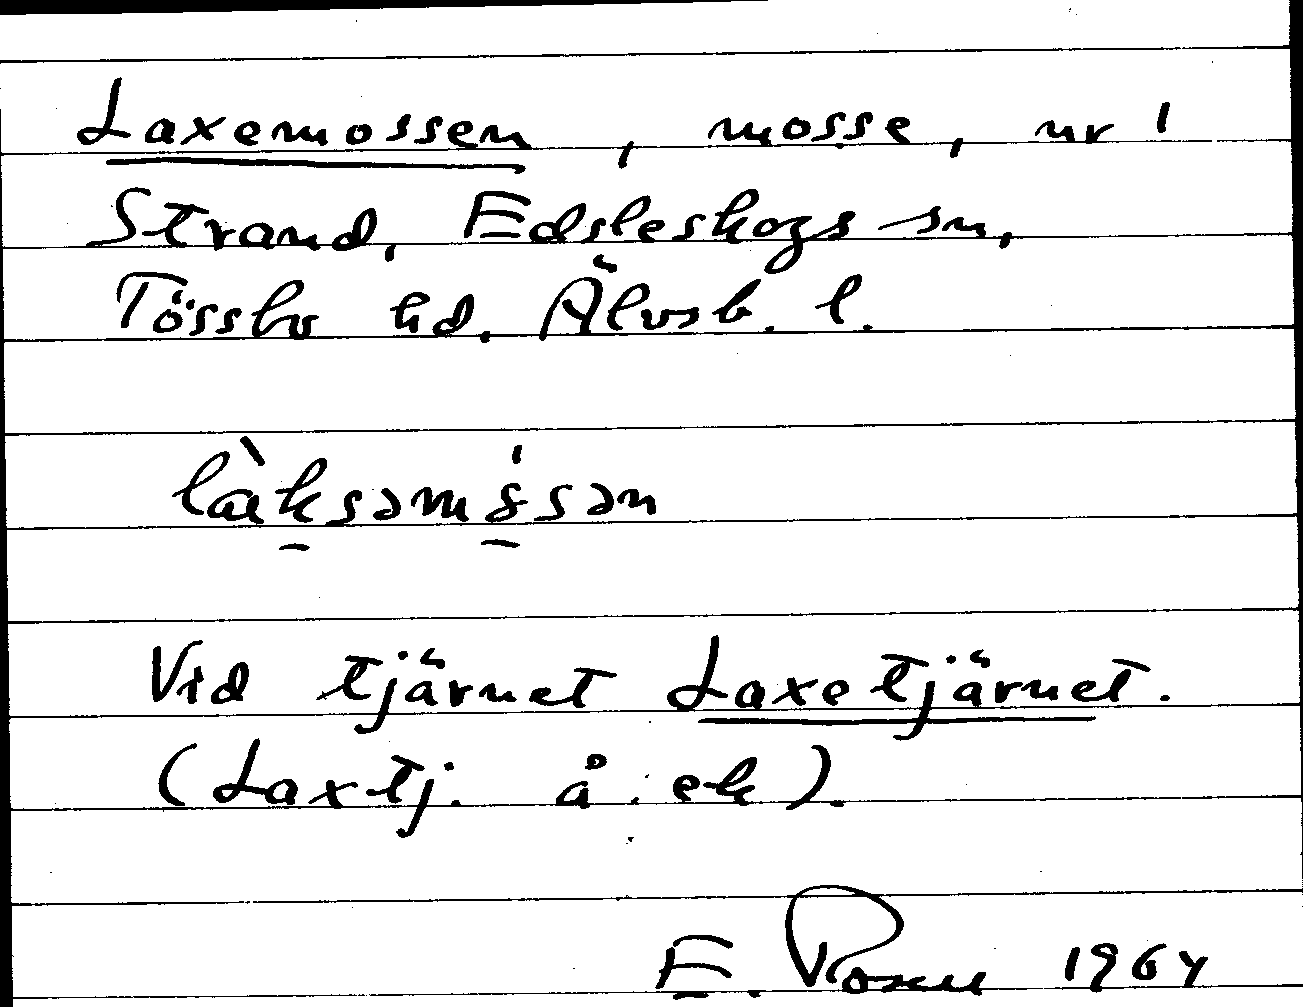 Laxemossen, mosse, nr 1
Strand, Edsleskogs sn,
Tössbo hd. Älvsb. l.
làksəmśsən
Vid tjärnet Laxetjärnet.
(Laxtj. å. ek).
E. Rosen 1964